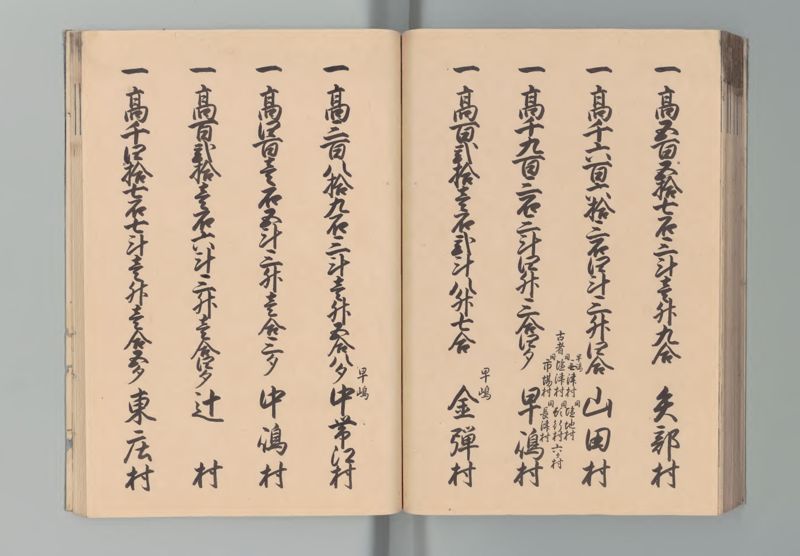 一高五百五拾七石三斗壱升九合 矢部村
一高千六百六拾三石四斗三升四合 山田村
一高千九百三石三斗四升三合四夕 早嶋村
古者
早嶋
同塩津村
同市場村
同塩地村
同長津村
六ヶ村
一高百弐拾壱石弐斗八升七合 早嶋 金弾村
一高二百八拾九石三斗壱升五合八夕 早嶋 中帯江村
一高四百壱石五斗三升壱合三夕 中嶋村
一高百弐拾壱石六斗三升壱合四夕 辻村
一高千四拾七石七斗壱升壱合五夕 東庄村